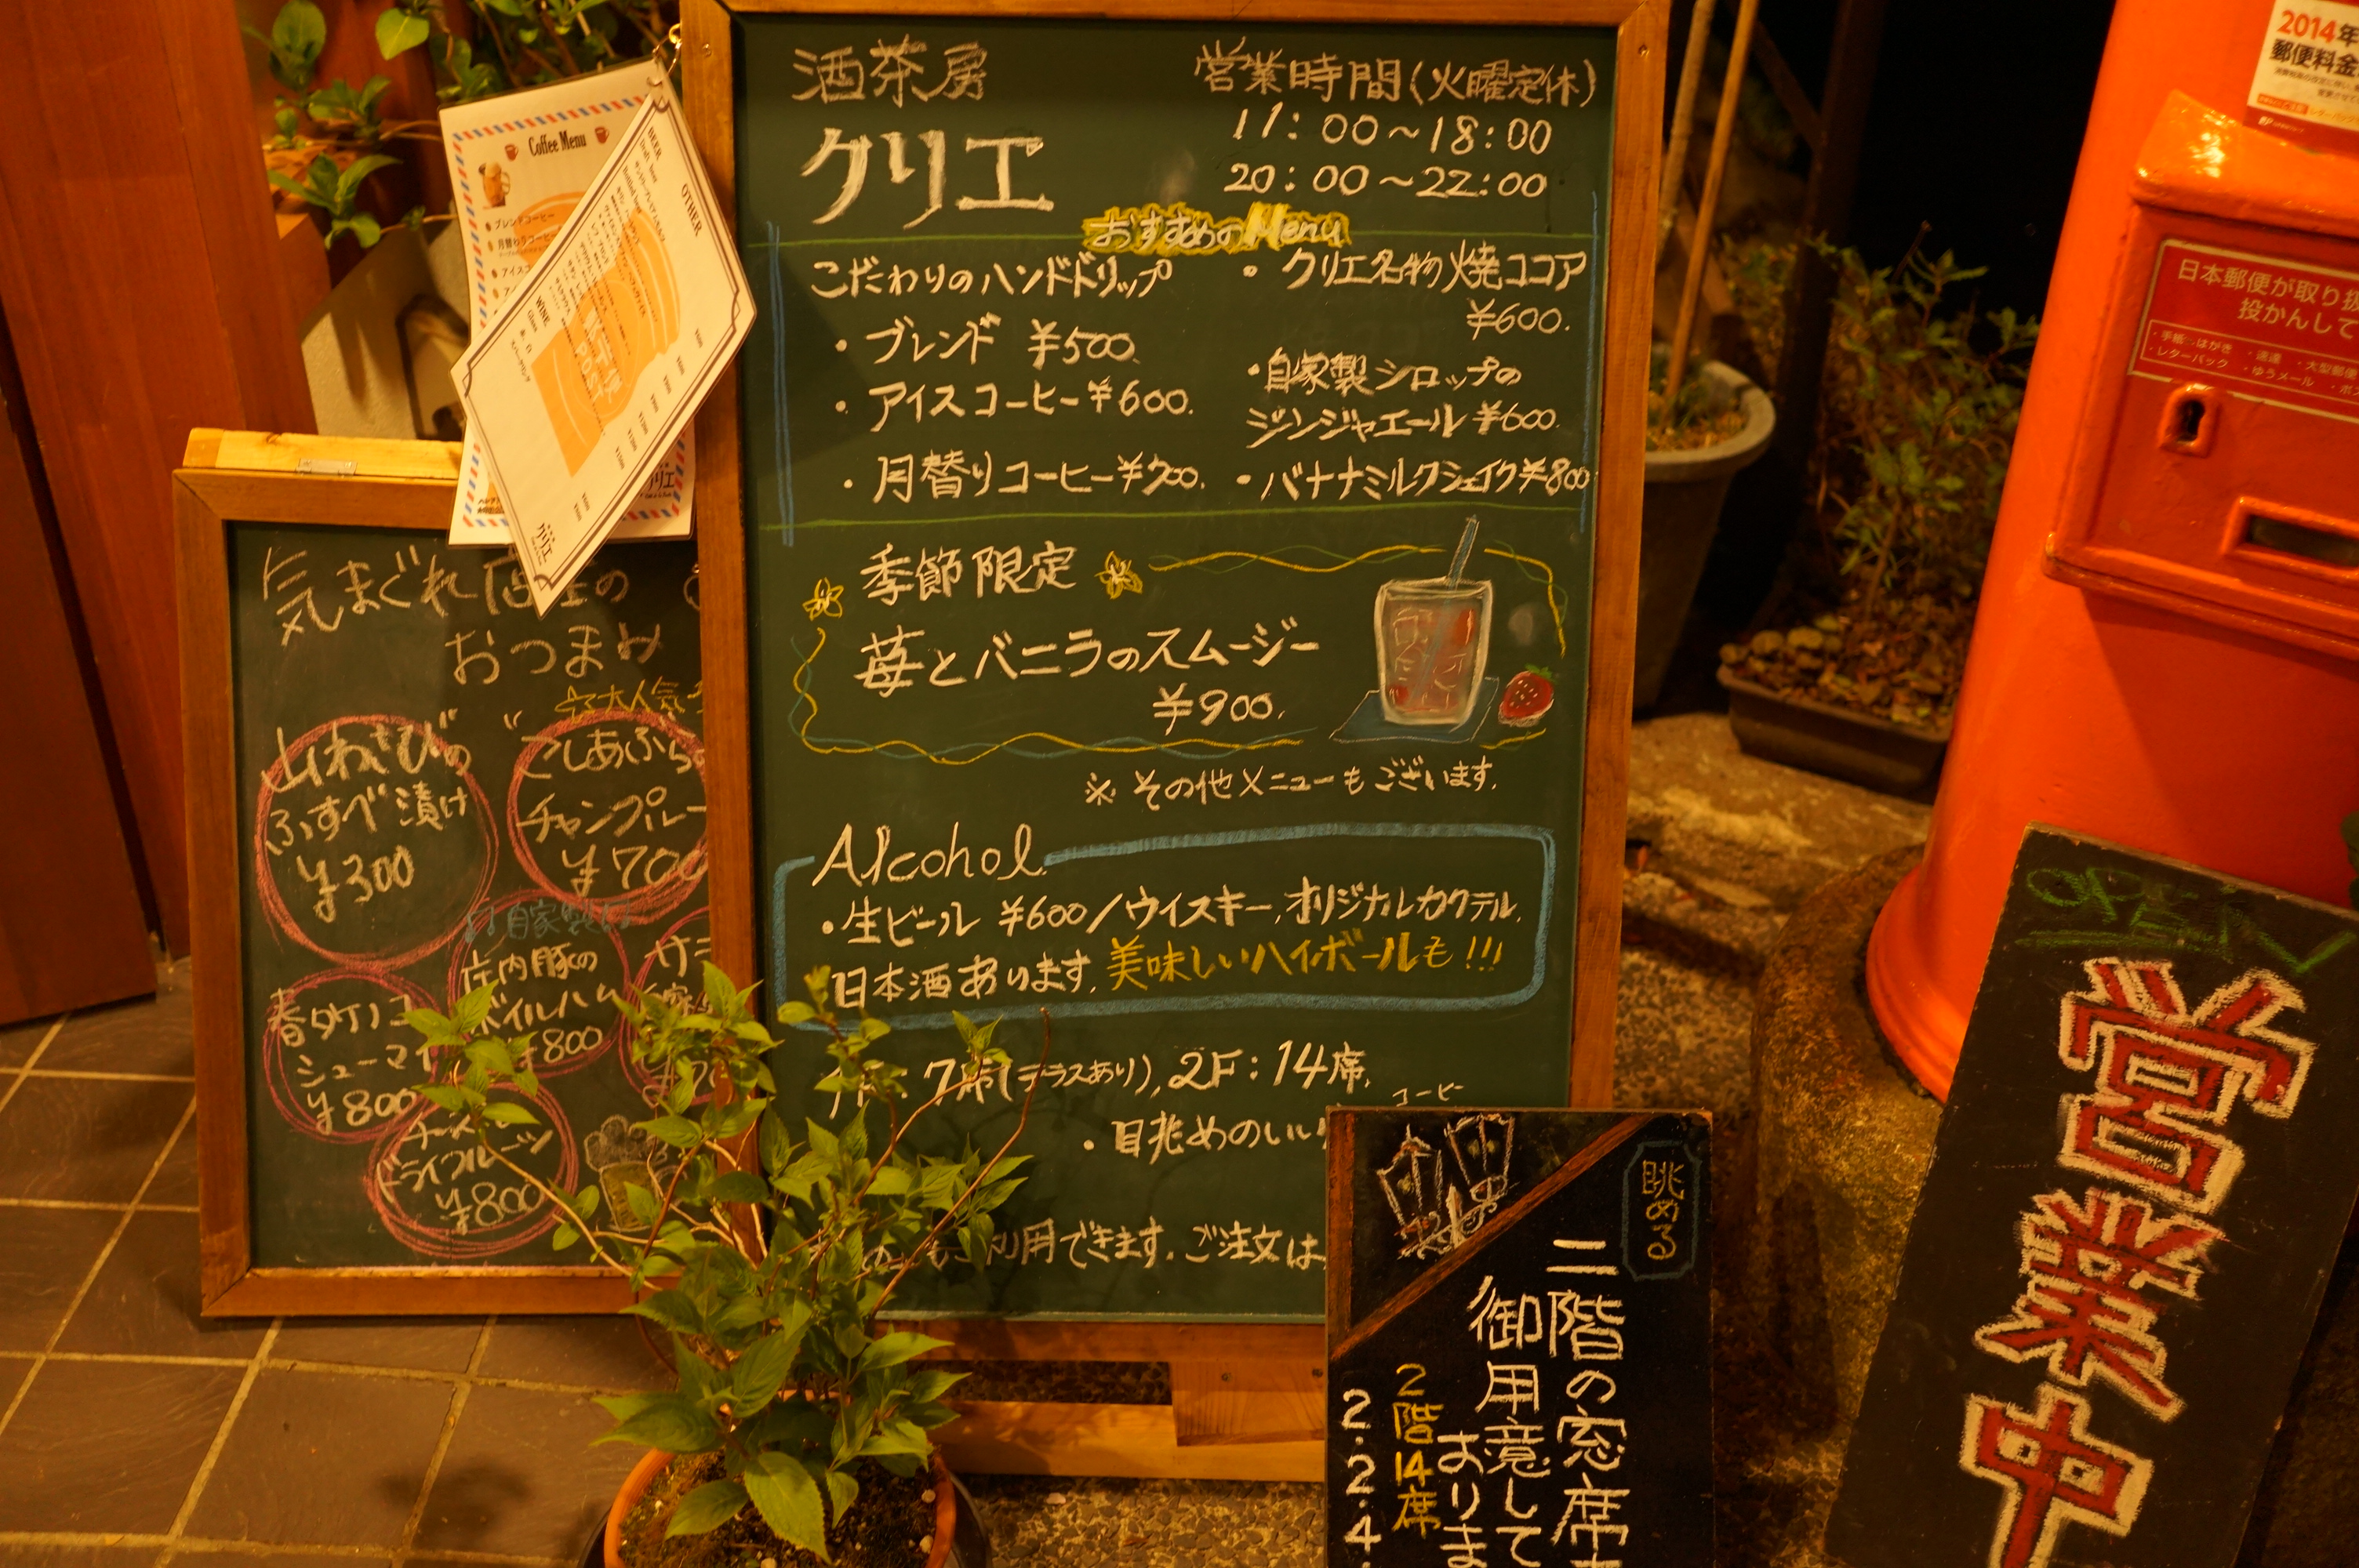 酒茶房
クリエ
営業時間(火曜定休)
11:00～18:00
20:00～22:00
おすすめのMenu
こだわりのハンドドリップ
・ブレンド ¥500.
・アイスコーヒー¥600.
・月替りコーヒー¥700.
・クリエ名物 焼ココア
¥600.
・自家製シロップの
ジンジャエール ¥600.
・バナナミルクシェイク¥800
季節限定
苺とバニラのスムージー
¥900.
※ その他メニューもございます.
Alcohol.
・生ビール ¥600/ウイスキー,オリジナルカクテル,
日本酒あります.美味しいハイボールも!!!
7席(テラスあり),2F:14席.
コーヒー
・眺めのいい
利用できます.ご注文は
Coffee Menu
ブレンドコーヒー
月替わりコーヒー
アイスコ
BEER
OTHER
WINE
POST
クリエ
気まぐれ店主の
おつまみ
大人気
山わさびの
ふすべ漬け
¥300
こしあぶらの
チャンプルー
¥700
自家製
庄内豚の
ボイルハム
¥800
春タケノコ
シューマイ
¥800
ドライフルーツ
¥800
眺める
二階の窓席
御用意して
おりま
2階14席
2.2.4.
OPEN
営業中
2014年
郵便料金
日本郵便が取り扱
投かんして
・手紙・はがき ・速達 ・大型郵便
・レターパック ・ゆうメール